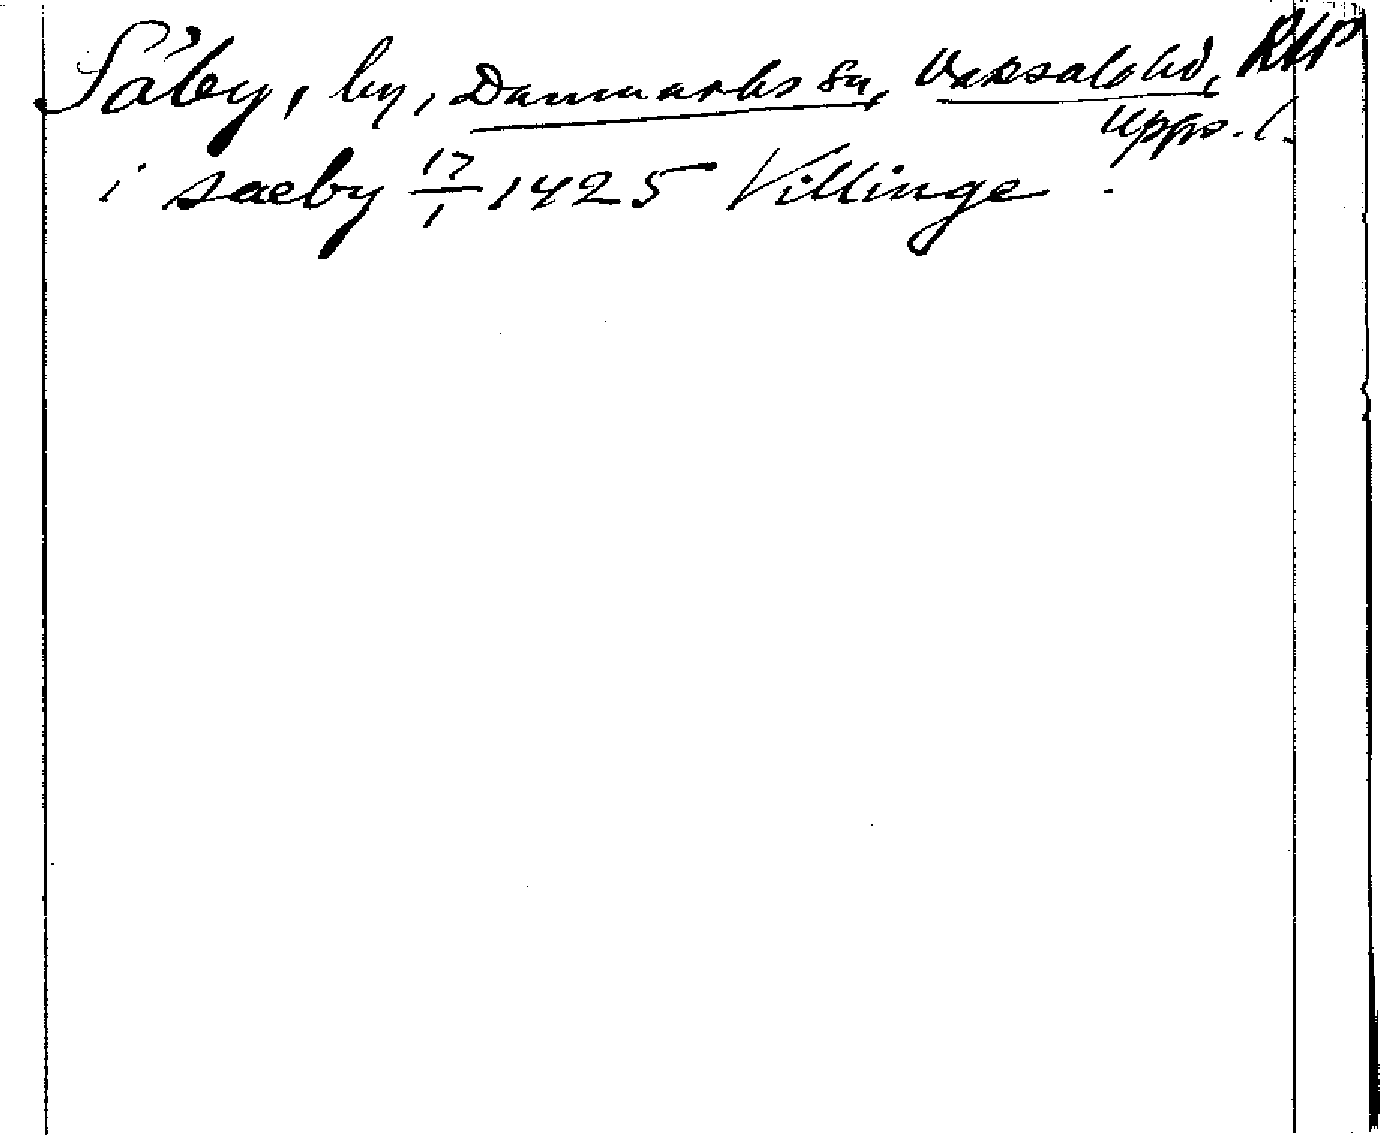 Såby, by, Danmarks sn, Vaksala hd, RAP
Upps. l.
i saeby 17/1 1425 Villinge